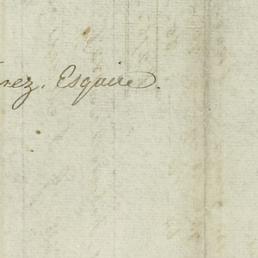 rez. Esquire.